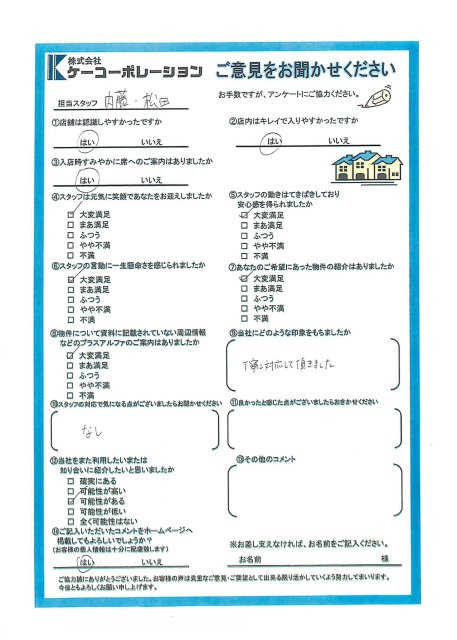 株式会社
ケーコーポレーション ご意見をお聞かせください
担当スタッフ 内藤・松田
お手数ですが、アンケートにご協力ください。
①店舗は認識しやすかったですか
はい いいえ
②店内はキレイで入りやすかったですか
はい いいえ
③入店時すみやかに席へのご案内はありましたか
はい いいえ
④スタッフは元気に笑顔であなたをお迎えしましたか
□ 大変満足
□ まあ満足
□ ふつう
□ やや不満
□ 不満
⑤スタッフの動きはてきぱきしており
安心感を得られましたか
□ 大変満足
□ まあ満足
□ ふつう
□ やや不満
□ 不満
⑥スタッフの言動に一生懸命さを感じられましたか
□ 大変満足
□ まあ満足
□ ふつう
□ やや不満
□ 不満
⑦あなたのご希望にあった物件の紹介はありましたか
□ 大変満足
□ まあ満足
□ ふつう
□ やや不満
□ 不満
⑧物件について資料に記載されていない周辺情報
などのプラスアルファのご案内はありましたか
□ 大変満足
□ まあ満足
□ ふつう
□ やや不満
□ 不満
⑨当社にどのような印象をもちましたか
丁寧に対応して頂きました
⑩スタッフの対応で気になる点がございましたらお聞かせください
なし
⑪良かったと感じた点がございましたらおきかせください
⑫当社をまた利用したいまたは
知り合いに紹介したいと思いましたか
□ 確実にある
□ 可能性が高い
□ 可能性がある
□ 可能性が低い
□ 全く可能性はない
⑬その他のコメント
⑭ご記入いただいたコメントをホームページへ
掲載してもよろしいでしょうか?
(お客様の個人情報は十分に配慮致します)
はい いいえ
※お差し支えなければ、お名前をご記入ください。
お名前 様
ご協力誠にありがとうございました。お客様の声は貴重なご意見・ご要望として出来る限り活かしていくよう努力してまいります。
今後ともよろしくお願い申し上げます。